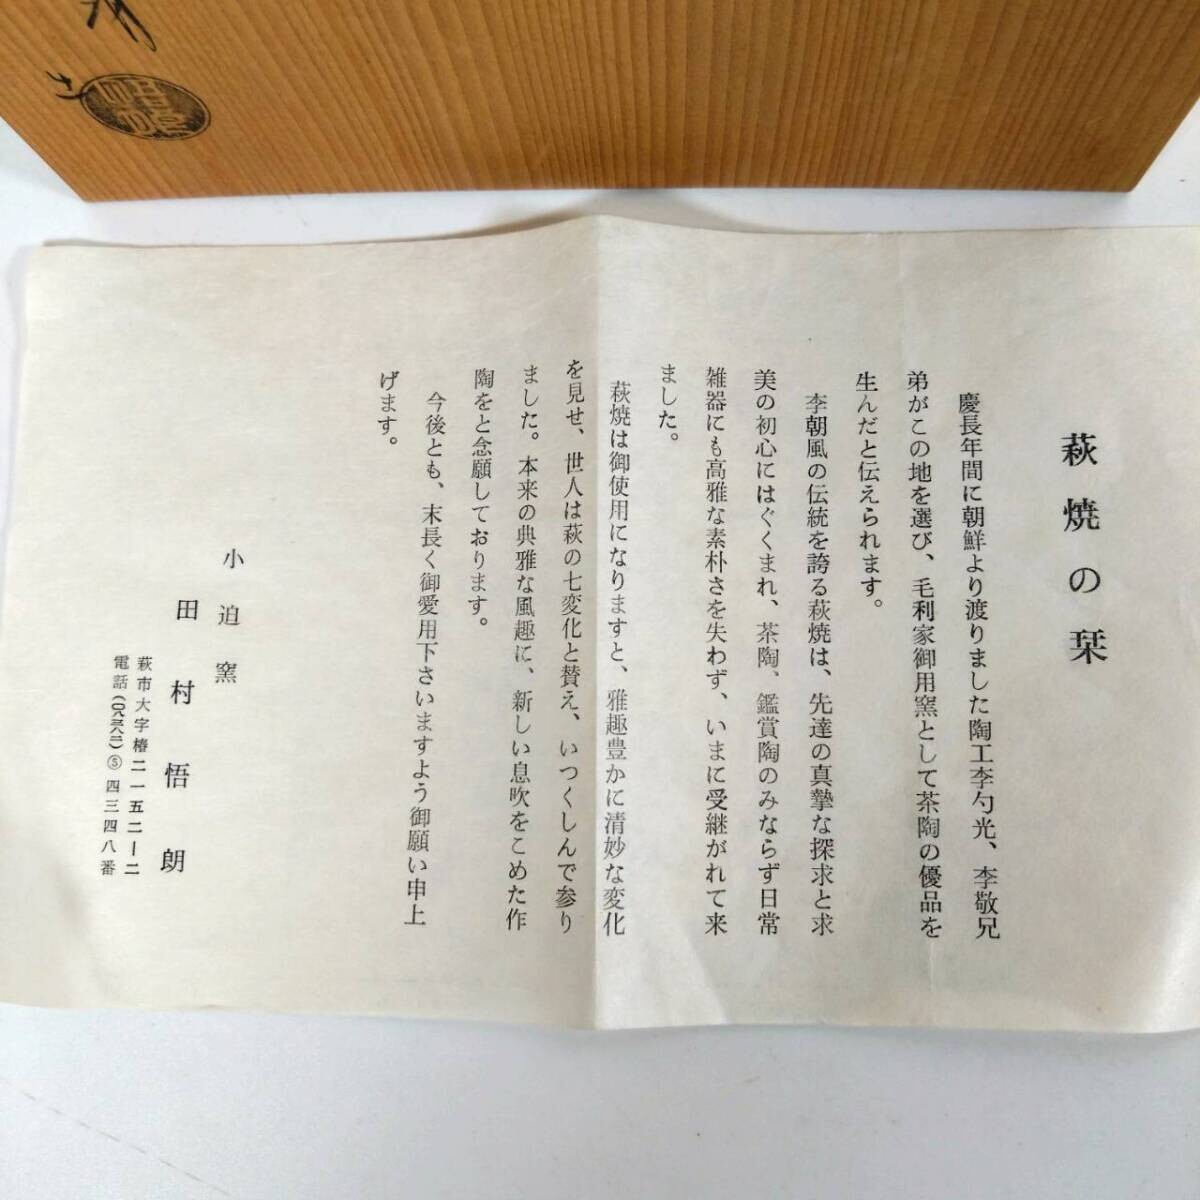 萩焼の栞
慶長年間に朝鮮より渡りました陶工李勺光、李敬兄
弟がこの地を選び、毛利家御用窯として茶陶の優品を
生んだと伝えられます。
李朝風の伝統を誇る萩焼は、先達の真摯な探求と求
美の初心にはぐくまれ、茶陶、鑑賞陶のみならず日常
雑器にも高雅な素朴さを失わず、いまに受継がれて来
ました。
萩焼は御使用になりますと、雅趣豊かに清妙な変化
を見せ、世人は萩の七変化と賛え、いつくしんで参り
ました。本来の典雅な風趣に、新しい息吹をこめた作
陶をと念願しております。
今後とも、末長く御愛用下さいますよう御願い申上
げます。
小迫窯
田村悟朗
萩市大字椿二一五二ー二
電話(〇八三八二)⑤四三四八番